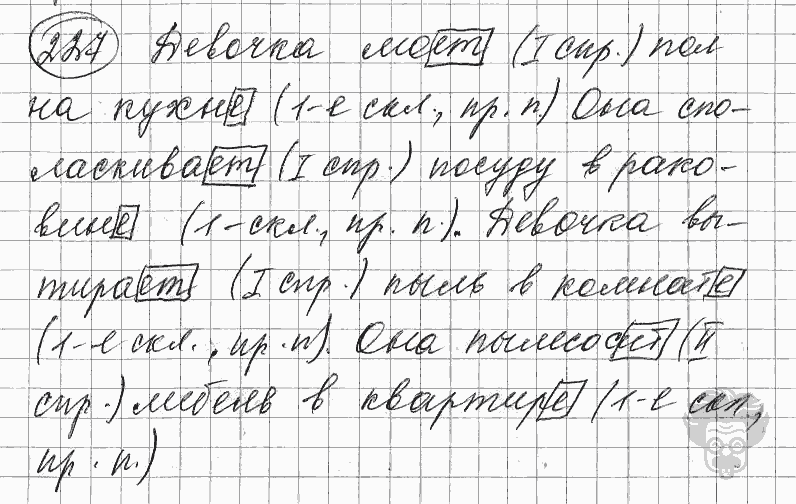 227 Девочка моет (I спр.) пол
на кухне (1-е скл., пр. п.) Она спо-
ласкивает (I спр.) посуду в рако-
вине (1-скл., пр. п.). Девочка вы-
тирает (I спр.) пыль в комнате
(1-е скл., пр. п). Она пылесосит (II
спр.) мебель в квартире (1-е скл.,
пр. п.)